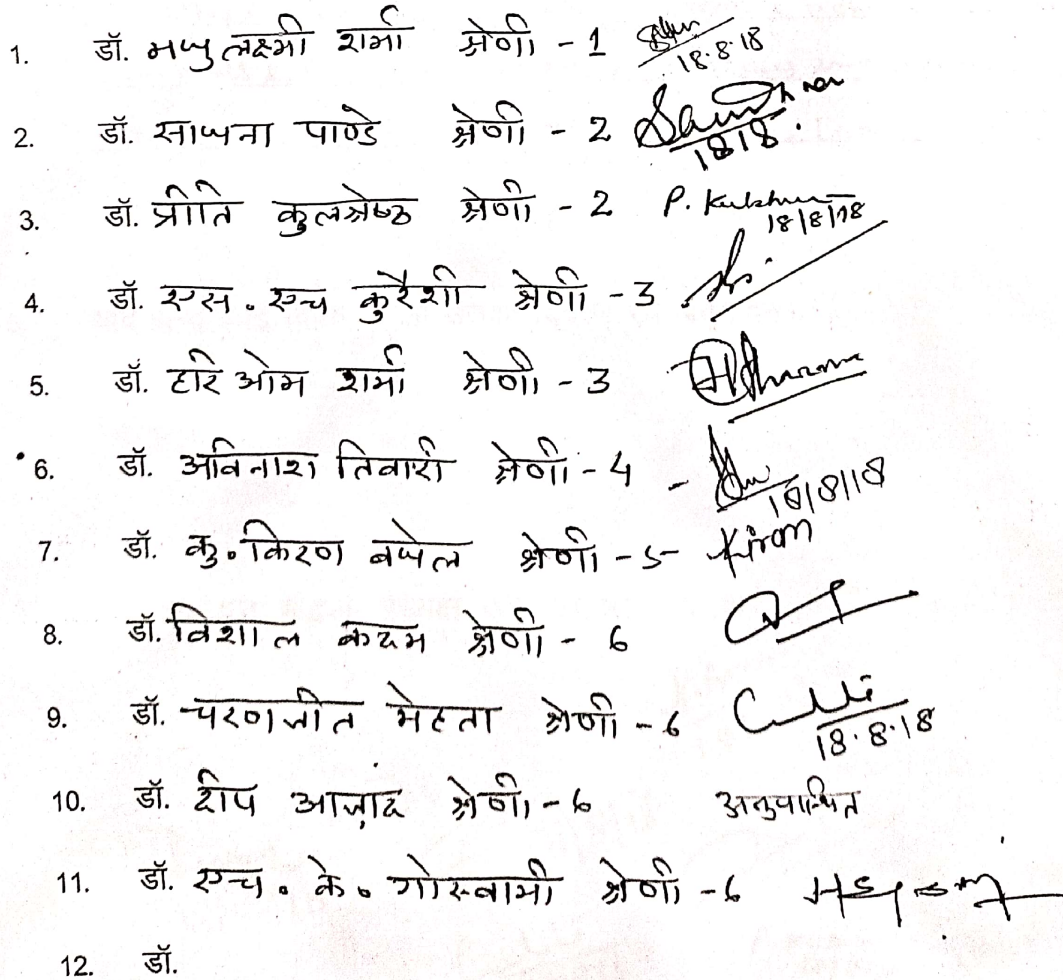 1. डॉ. मधु लक्ष्मी शर्मा श्रेणी - 1 18.8.18
2. डॉ. साधना पाण्डे श्रेणी - 2 Sadhna 1818.
3. डॉ. प्रीति कुलश्रेष्ठ श्रेणी - 2 P. Kulshre 18/8/18
4. डॉ. एस. एच कुरैशी श्रेणी - 3
5. डॉ. हरि ओम शर्मा श्रेणी - 3 HSharma
6. डॉ. अविनाश तिवारी श्रेणी - 4 - 18/8/18
7. डॉ. कु. किरण बघेल श्रेणी - 5 - Kiran
8. डॉ. विशाल कदम श्रेणी - 6
9. डॉ. चरणजीत मेहता श्रेणी - 6 18.8.18
10. डॉ. दीप आज़ाद श्रेणी - 6 अनुपस्थित
11. डॉ. एच. के. गोस्वामी श्रेणी - 6
12. डॉ.